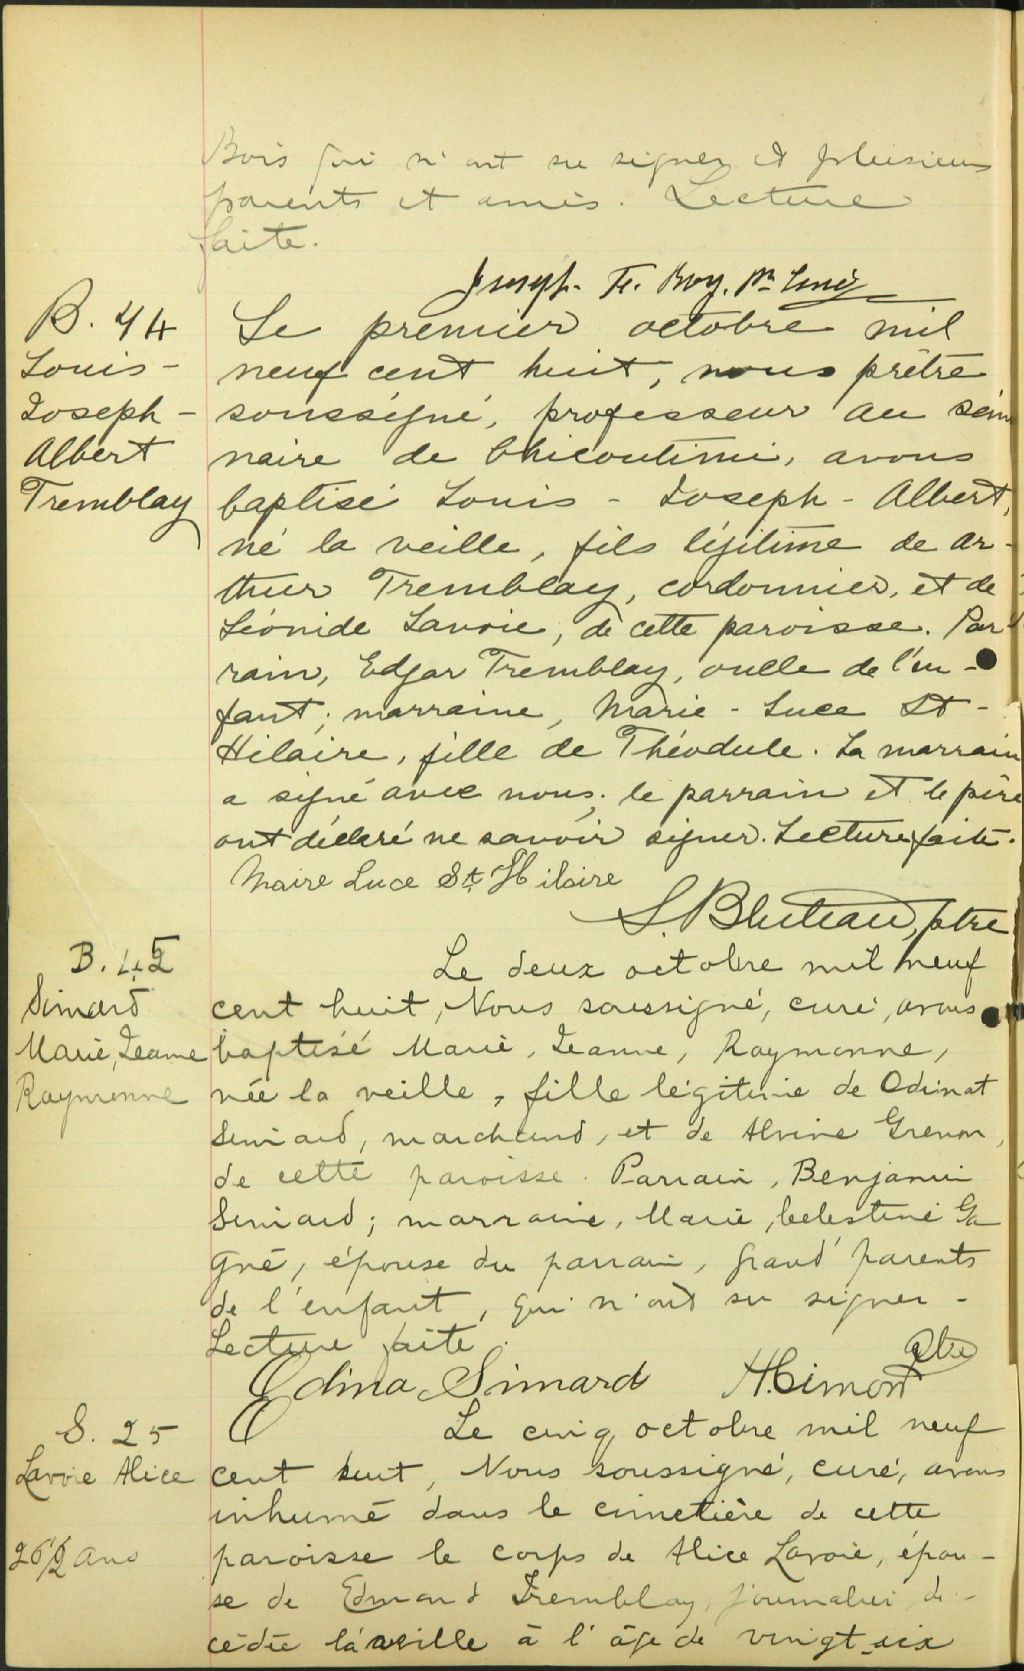 Bois qui n'ont su signer et plusieurs
parents et amis. Lecture
faite.
Joseph. F. Roy. Ptr Curé
B. 44
Louis-
Joseph-
Albert
Tremblay
Le premier octobre mil
neuf cent huit, nous prêtre
soussigné, professeur au sémi
naire de Chicoutimi, avons
baptisé Louis - Joseph - Albert,
né la veille, fils légitime de Ar-
thur Tremblay, cordonnier, et de
Léonide Lavoie, de cette paroisse. Par
rain, Edgar Tremblay, oncle de l'en-
fant; marraine, Marie - Luce St-
Hilaire, fille de Théodule. La marraine
a signé avec nous; le parrain et le père
ont déclaré ne savoir signer. Lecture faite.
Marie Luce St Hilaire
S. Bluteau, ptre
B. 45
Simard
Marie, Jeanne
Raymonne
Le deux octobre mil neuf
cent huit, Nous soussigné, curé, avons
baptisé Marie, Jeanne, Raymonne,
née la veille, fille légitime de Odinat
Simard, marchand, et de Alvine Grenon,
de cette paroisse. Parrain, Benjamin
Simard; marraine, Marie, Célestine Ga
gné, épouse du parrain, grand'parents
de l'enfant, qui n'ont su signer -
Lecture faite.
Edina Simard H. Cimon Ptre
S. 25
Lavoie Alice
26 1/2 ans
Le cinq octobre mil neuf
cent huit, Nous soussigné, curé, avons
inhumé dans le cimetière de cette
paroisse le corps de Alice Lavoie, épou-
se de Edmond Tremblay, journalier, dé-
cédée la veille à l'âge de vingt-six